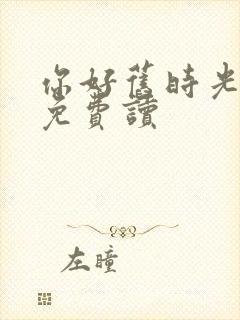 你好舊時光
免費讀
左瞳